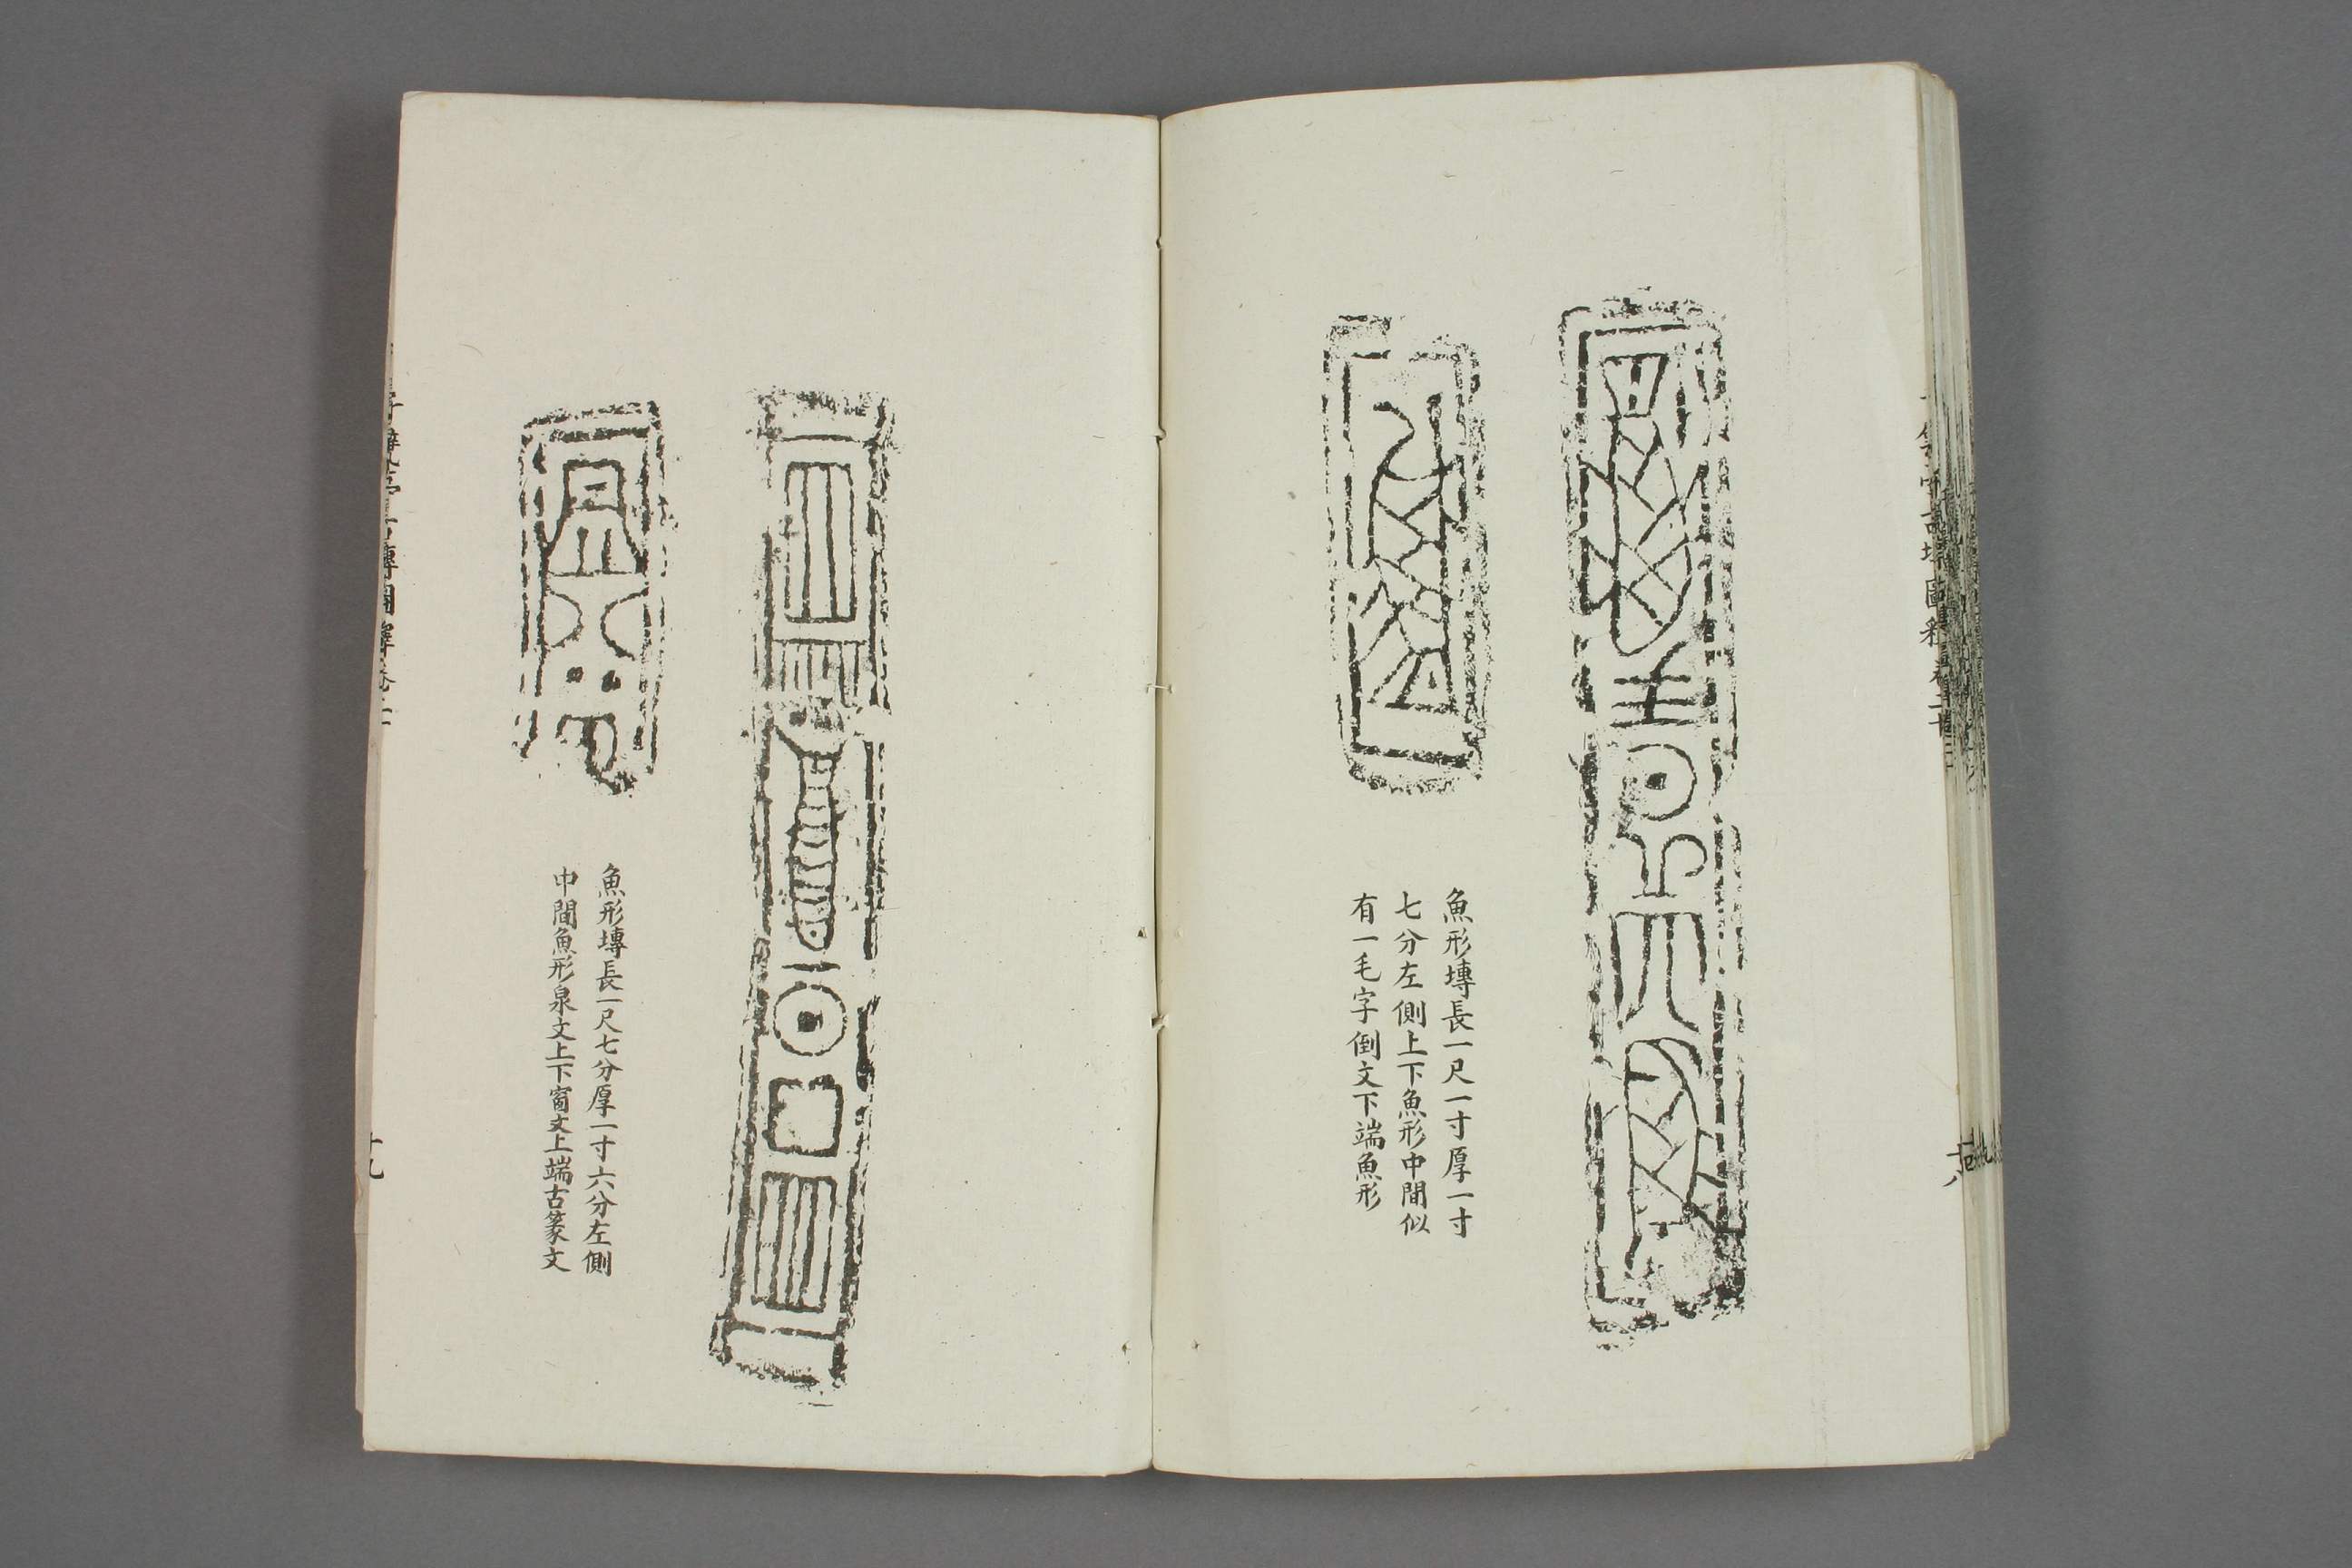 魚形塼長一尺一寸厚一寸
七分左側上下魚形中間似
有一毛字倒文下端魚形
魚形塼長一尺七分厚一寸六分左側
中間魚形泉文上下窗文上端古篆文
十九